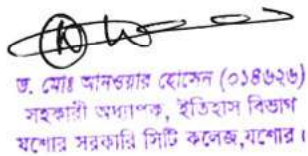 ড. মোঃ আনওয়ার হোসেন (০১৪৬২৬)
সহকারী অধ্যাপক, ইতিহাস বিভাগ
যশোর সরকারি সিটি কলেজ, যশোর।